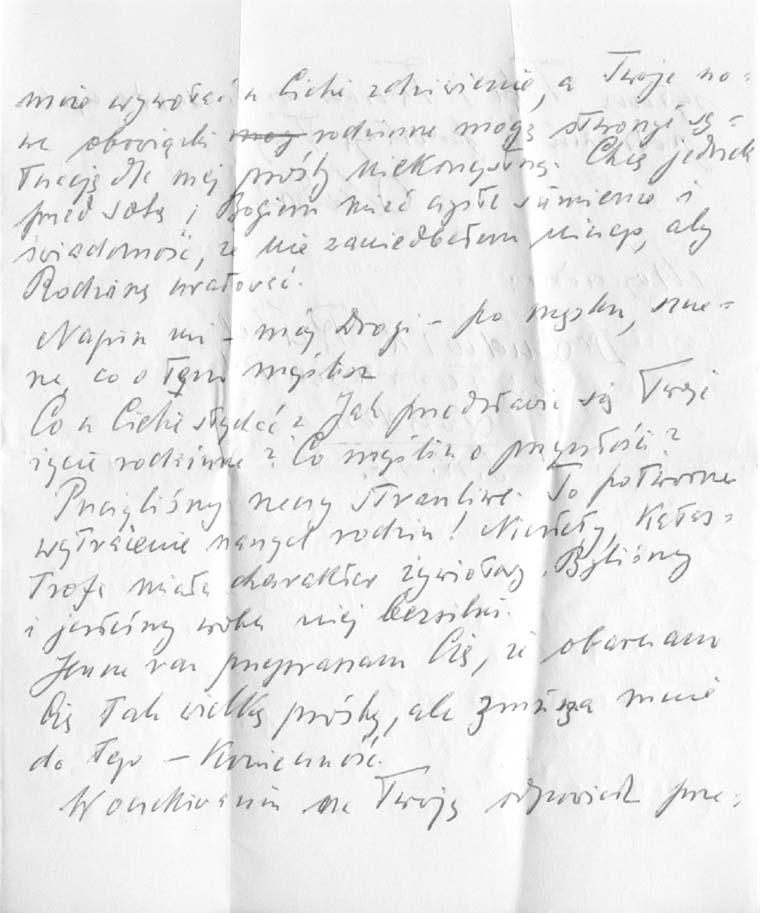 może wywołać u Ciebie zdziwienie, a Twoje no=
we obowiązki mog rodzinne mogą stworzyć sy=
tuację dla mej prośby niekorzystną. Chcę jednak
przed sobą i Bogiem mieć czyste sumienie i
świadomość, że nie zaniedbałem niczego, aby
Rodzinę uratować.
Napisz mi - mój Drogi - po męsku, szcze=
rze, co o tym myślisz
Co u Ciebie słychać? Jak przedstawia się Twoje
życie rodzinne? Co myślisz o przyszłości?
Przeżyliśmy rzeczy straszliwe. To potworne
wytracenie naszych rodzin! Niestety, Katas=
trofa miała charakter żywiołowy. Byliśmy
i jesteśmy wobec niej bezsilni.
Jeszcze raz przepraszam Cię, że obarczam
Cię tak wielką prośbą, ale zmusza mnie
do tego - Konieczność.
W oczekiwaniu na Twoją odpowiedź prze=